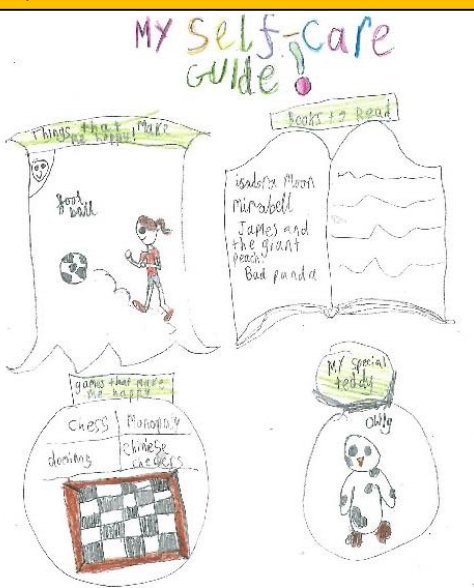 MY Self-Care
GUIDE!
Things that Make
me happy!
foot
ball
Books to Read
isadora Moon
Mirabell
James and
the giant
peach
Bad panda
games that make
me happy
Chess
Monopoly
dominos
Chinese
checkers
My special
teddy
Olly